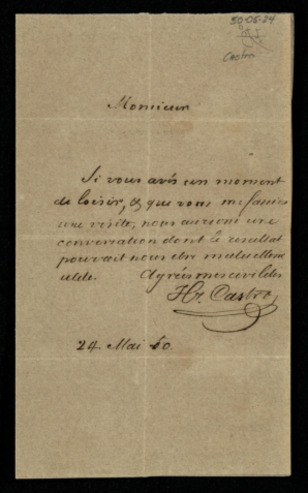 50-05-24
Castro
Monsieur
Si vous avés un moment
de loisir, & que vous me fassiés
une visite, nous aurions une
conversation dont le resultat
pouvait nous etre mutuellement
utile. Agrées mes civilités
Hy. Castro
24. Mai 50.